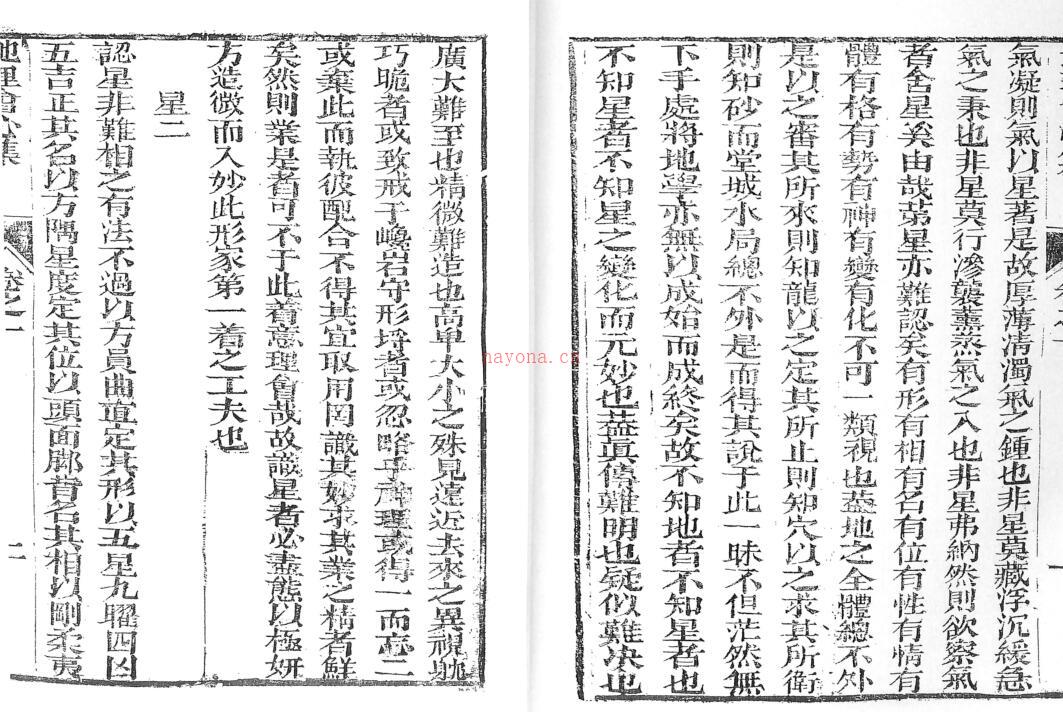 氣凝則氣以星著是故厚薄淸濁氣之鍾也非星莫藏浮沉緩急
氣之秉也非星莫行滲襲薰蒸氣之入也非星弗納然則欲察氣
者舍星奚由哉苐星亦難認矣有形有相有名有位有性有情有
體有格有勢有神有變有化不可一類視也葢地之全體總不外
是以之審其所來則知龍以之定其所止則知穴以之求其所衛
則知砂而堂城水局總不外是而得其說于此一昧不但茫然無
下手處將地學亦無以成始而成終矣故不知地者不知星者也
不知星者不知星之變化而元妙也葢眞傳難明也疑似難决也
廣大難至也精微難造也高卑大小之殊見遠近去來之異視躭
巧跪者或致戒于巉岩守形埒者或忽略乎神理或得一而忘二
或棄此而執彼配合不得其宜取用罔識其妙求其業之精者鮮
矣然則業是者可不于此着意理會哉故識星者必盡態以極妍
方造微而入妙此形家第一着之工夫也
星二
認星非難相之有法不過以方員曲直定其形以五星九曜四凶
五吉正其名以方隅星度定其位以頭面脚背名其相以剛柔夷
地理會心集
卷之一
二
hayona.cn